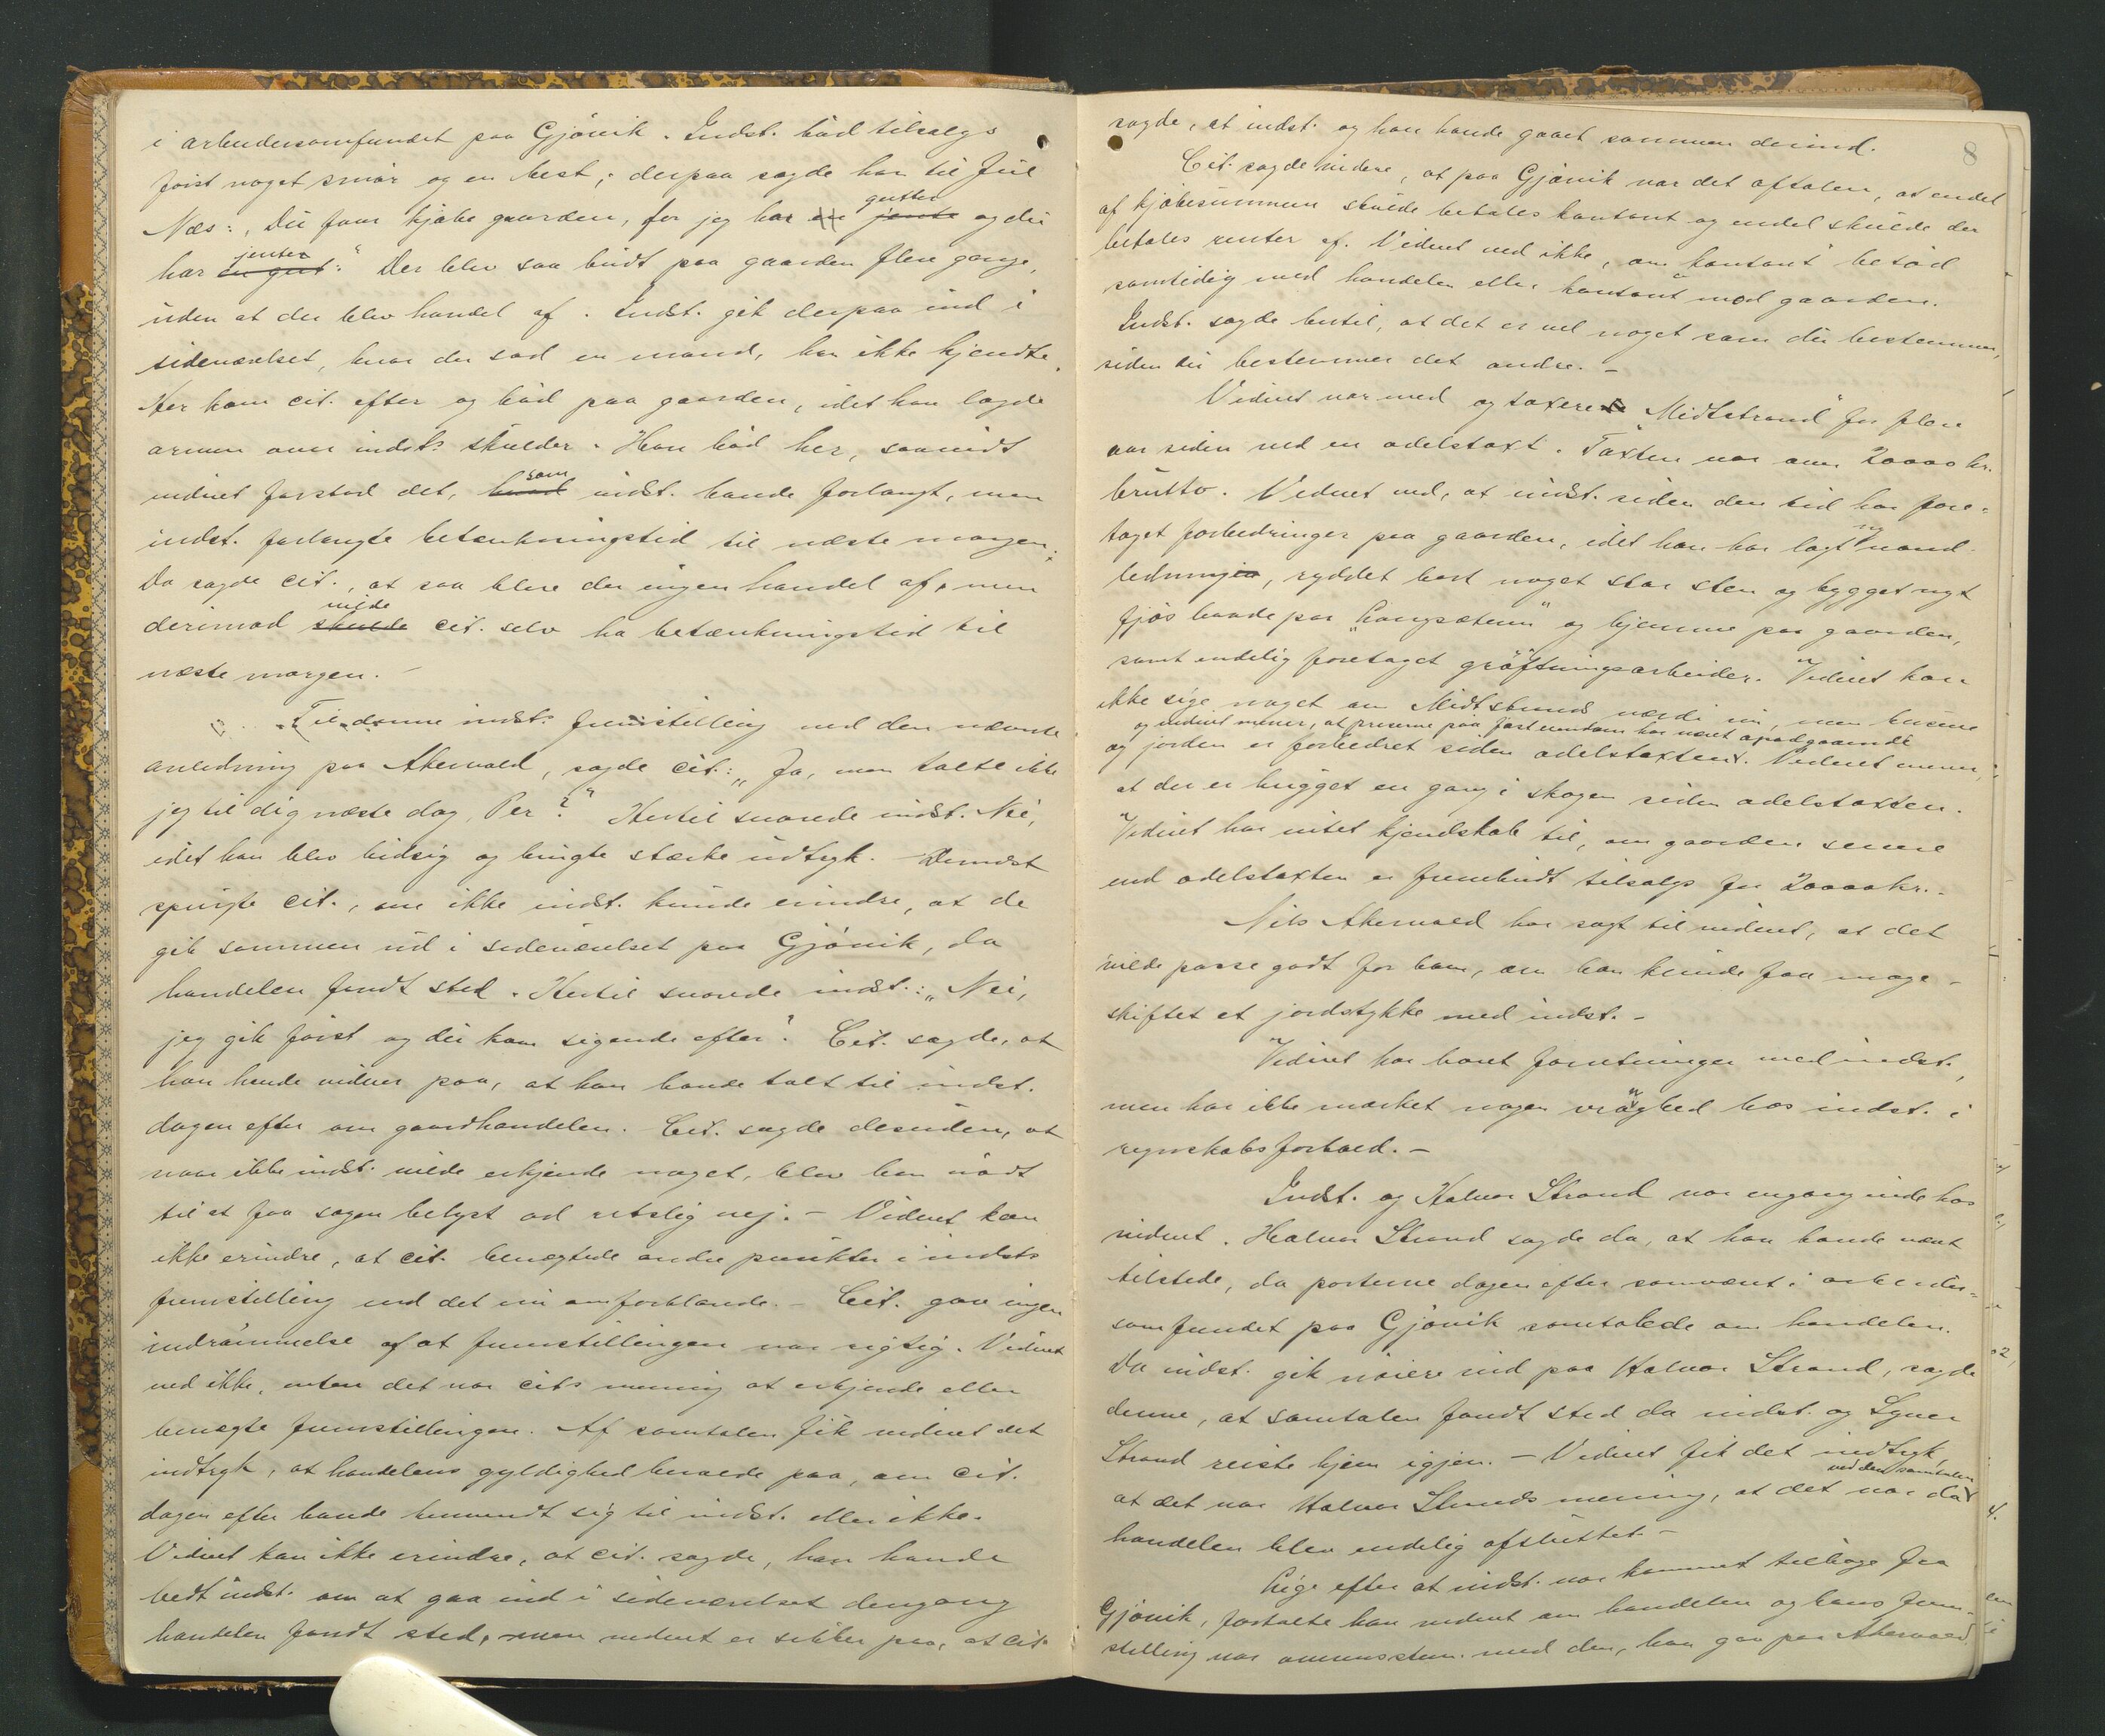 i arbeidersamfundet paa Gjøvik. Indst. bød tilsalgs
først noget smør og en hest; derpaa sagde han til Juul
Næs: „Du faar kjøbe gaarden, for jeg har en jente gutter og du
har en gut jenter." Der blev saa budt paa gaarden flere gange,
uden at der blev handel af. Indst. gik derpaa ind i
sideværelset, hvor der sad en mand, han ikke kjendte.
Her kom cit. efter og bød paa gaarden, idet han lagde
armen over indst.s skulder. Han bød her, saavidt
vidnet forstod det, hvad som indst. havde forlangt, men
indst. forlangte betænkningstid til næste morgen.
Da sagde cit., at saa blev der ingen handel af, men
derimod skulde vilde cit. selv ha betænkningstid til
næste morgen. –
Til denne indst.s fremstilling ved den nævnte
anledning paa Akervold, sagde cit.: „Ja, men talte ikke
jeg til dig næste dag, Per?" Hertil svarede indst. Nei,
idet han blev hidsig og brugte stærke udtryk. – Dernæst
spurgte cit., om ikke indst. kunde erindre, at de
gik sammen ud i sideværelset paa Gjøvik, da
handelen fandt sted. Hertil svarede indst.: „Nei,
jeg gik først og du kom sigende efter". Cit. sagde, at
han havde vidner paa, at han havde talt til indst.
dagen efter om gaardhandelen. Cit. sagde desuden, at
naar ikke indst. vilde erkjende noget, blev han nødt
til at faa sagen belyst ad retslig vej. – Vidnet kan
ikke erindre, at cit. benægtede andre punkter i indsts
fremstilling end det nu omforklarede. – Cit. gav ingen
indrømmelse af at fremstillingen var rigtig. Vidnet
ved ikke, enten det var cits mening at erkjende eller
benægte fremstillingen. Af samtalen fik vidnet det
indtryk, at handelens gyldighed beroede paa, om cit.
dagen efter havde henvendt sig til indst. eller ikke.
Vidnet kan ikke erindre, at cit. sagde, han havde
bedt indst. om at gaa ind i sideværelset dengang
handelen fandt sted, men vidnet er sikker paa, at cit.
8
sagde, at indst. og han havde gaaet sammen derind.
Cit. sagde videre, at paa Gjøvik var det aftalen, at endel
af kjøbesummen skulde betales kontant og endel skulde der
betales renter af. Vidnet ved ikke, om „kontant" betød
samtidig med handelen eller kontant mod gaarden.
Indst. sagde hertil, at det er vel noget som du bestemmer,
siden du bestemmer det andre. –
Vidnet var med og taxere „Midtstrand" for flere
aar siden ved en odelstaxt. Taxten var om 20000 kr.
brutto. Vidnet ved, at indst. siden den tid har fore-
taget forbedringer paa gaarden, idet han har lagt ny vand-
ledning, ryddet bort noget stor sten og bygget nyt
fjøs baade paa „Langsæteren" og hjemme paa gaarden,
samt endelig foretaget grøftningsarbeider. Vidnet kan
ikke sige noget om Midtstrands værdi nu, men husene
og vidnet mener, at priserne paa fast eiendom har været opadgaaende
og jorden er forbedret siden odelstaxten. Vidnet mener,
at der er hugget en gang i skogen siden odelstaxten.
Vidnet har intet kjendskab til, om gaarden senere
end odelstaxten er frembudt tilsalgs for 20000 kr. –
Nils Akervold har sagt til vidnet, at det
vilde passe godt for ham, om han kunde faa mage-
skiftet et jordstykke med indst. –
Vidnet har havt forretninger med indst.,
men har ikke mærket nogen vranghed hos indst. i
regnskabsforhold. –
Indst. og Halvor Strand var engang inde hos
vidnet. Halvor Strand sagde da, at han havde været
tilstede, da parterne dagen efter samværet i arbeider-
samfundet paa Gjøvik samtalede om handelen.
Da indst. gik nøiere ind paa Halvor Strand, sagde
denne, at samtalen fandt sted da indst. og Syver
Strand reiste hjem igjen. – Vidnet fik det indtryk,
ved den samtalen
at det var Halvor Strands mening, at det var da
handelen blev endelig afsluttet. –
Lige efter at indst. var kommet tilbage fra
Gjøvik, fortalte han vidnet om handelen og hans frem-
stilling var overensstem. med den, han gav paa Akervold